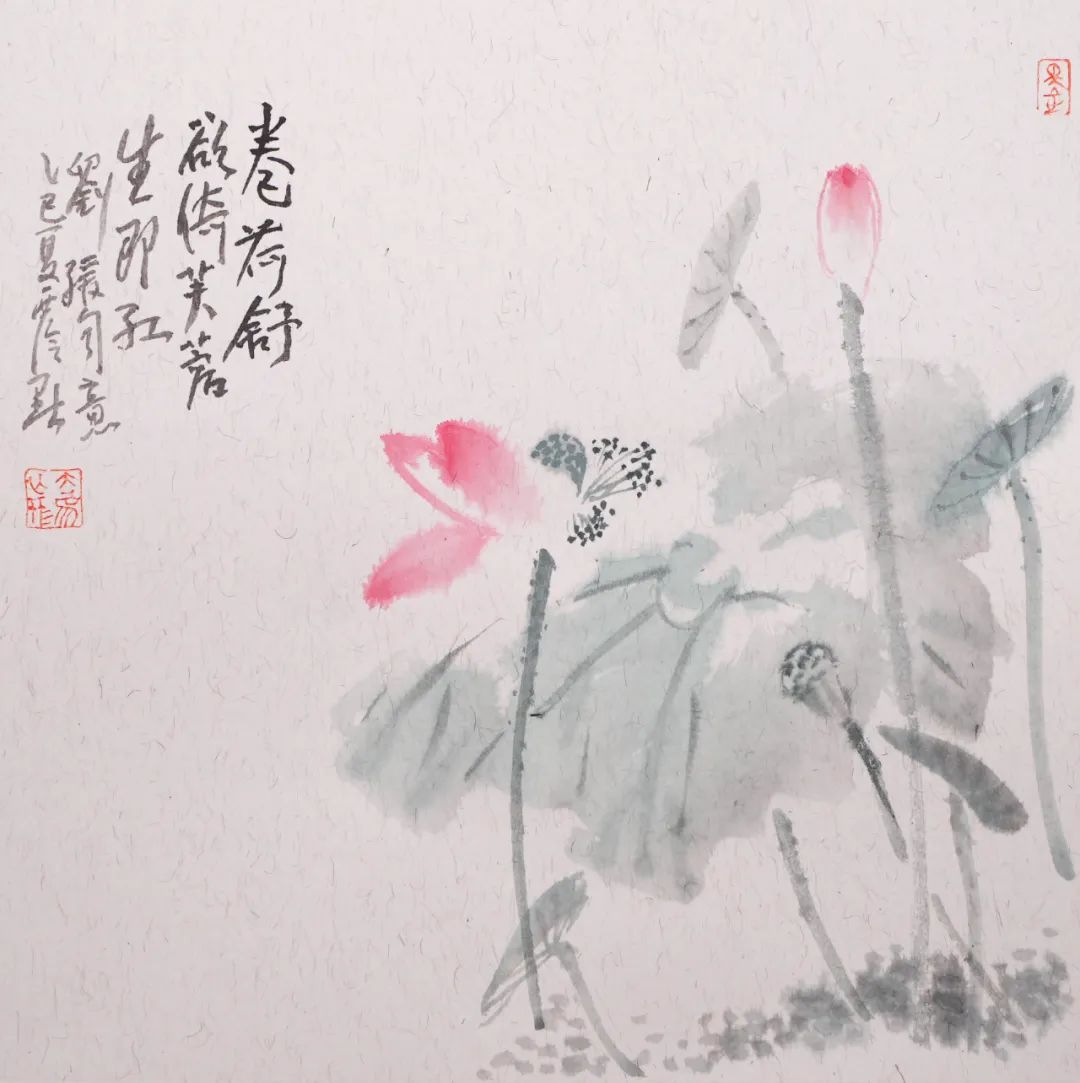 卷荷舒
欲倚芙蓉
生即红
劉緩句意
乙巳夏